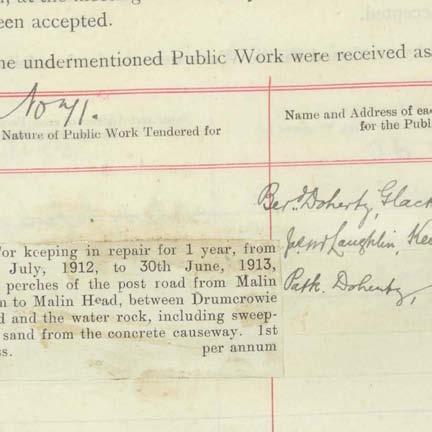 een accepted.
he undermentioned Public Work were received as
No 71.
Nature of Public Work Tendered for
Name and Address of ea
for the Publ
Berd. Doherty, Glack
Jas McLaughlin, Kee
Patk. Doherty,
For keeping in repair for 1 year, from
July, 1912, to 30th June, 1913,
perches of the post road from Malin
n to Malin Head, between Drumcrowie
d and the water rock, including sweep-
sand from the concrete causeway. 1st
ss. per annum